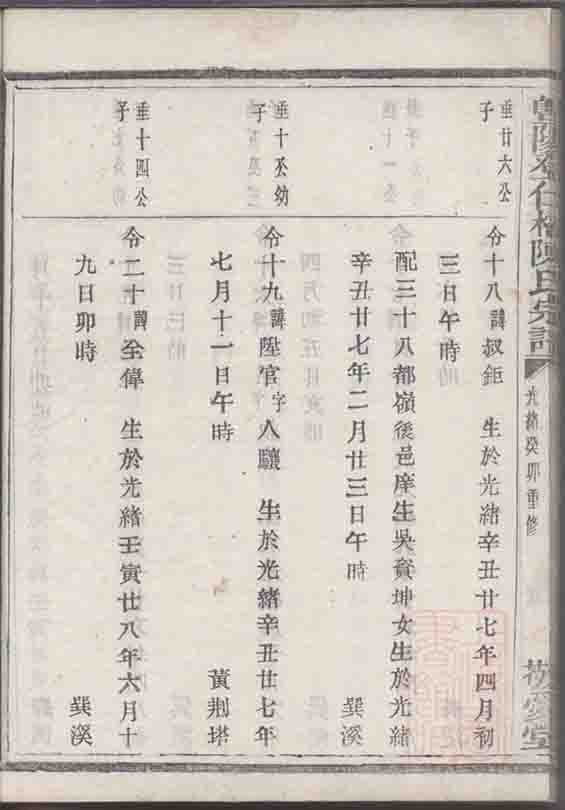 陳氏宗譜
光緒癸卯重修
垂廿六公
子
令十八諱叔鉅 生於光緒辛丑廿七年四月初
三日午時
配三十八都嶺後邑庠生吳資坤女生於光緒
辛丑廿七年二月廿三日午時 巽溪
垂十公幼
子
令十九諱陞官字人驤 生於光緒辛丑廿七年
七月十一日午時 黃荆塔
垂十四公
子
令二十諱全偉 生於光緒壬寅廿八年六月十
九日卯時 巽溪